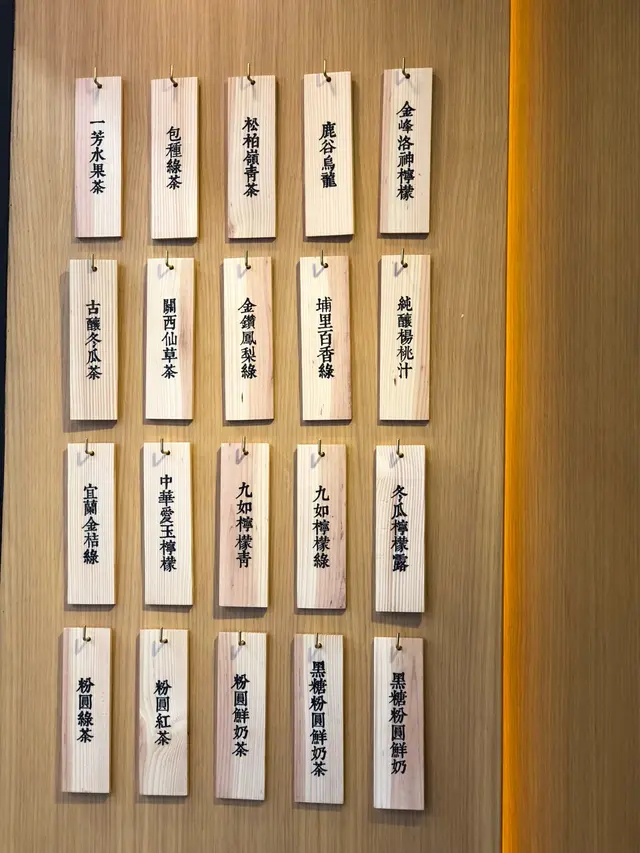 一芳水果茶
包種綠茶
松柏嶺青茶
鹿谷烏龍
金峰洛神檸檬
古釀冬瓜茶
關西仙草茶
金鑽鳳梨綠
埔里百香綠
純釀楊桃汁
宜蘭金桔綠
中華愛玉檸檬
九如檸檬青
九如檸檬綠
冬瓜檸檬露
粉圓綠茶
粉圓紅茶
粉圓鮮奶茶
黑糖粉圓鮮奶茶
黑糖粉圓鮮奶